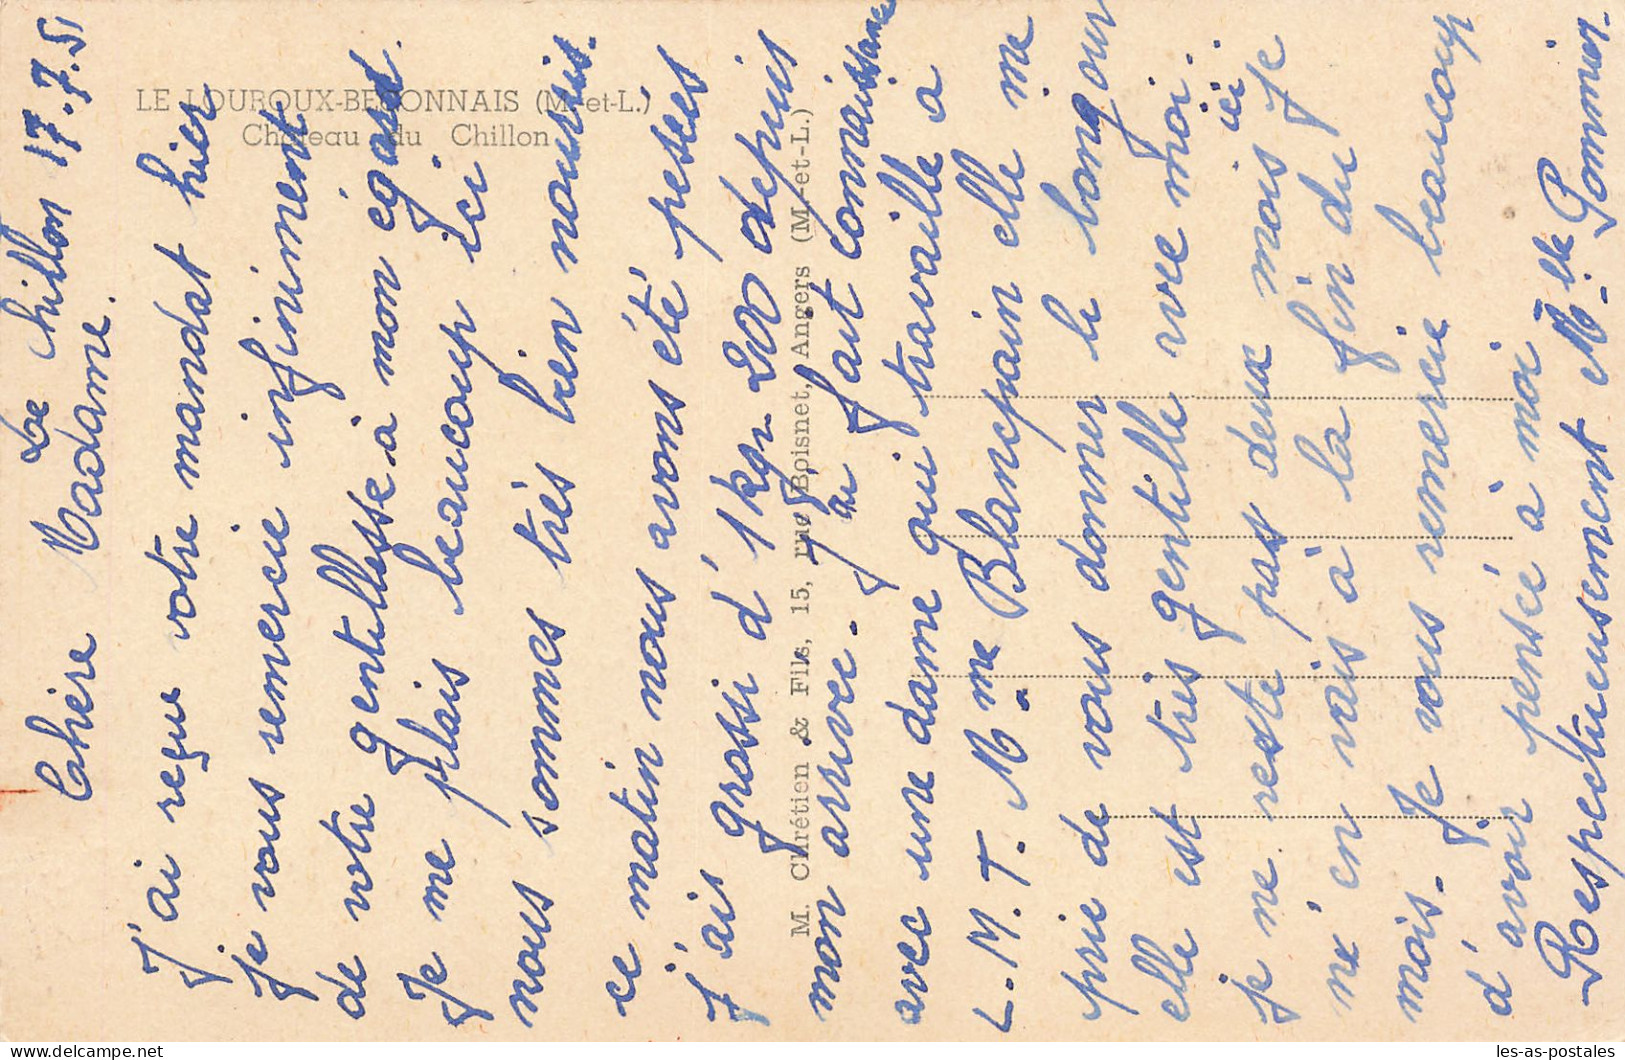 LE LOUROUX-BECONNAIS (M.-et-L.)
Château du Chillon
M. Chrétien & Fils, 15, rue Boisnet, Angers (M.-et-L.)
Le Chillon 17.7.51
Cahère Madame.
J'ai reçue votre mandat hier
je vous remercie infiniment
de votre gentillesse à mon égard.
Je me plais beaucoup ici
nous sommes très bien nourris.
ce matin nous avons été pesées
j'ais grossi d'1 kgr 200 depuis
mon arrivée. J'au fait connaissance
avec une dame qui travaille a
L.M.T. Mme Blancpain elle me
prie de vous donner le bonjour
elle est très gentille avec moi.
je ne reste pas deux mois ici Je
m'en vais à la fin du
mois. Je vous remercie beaucoup
d'avoir pensée à moi
Respectueusement Mlle Pommier.
les-as-postales